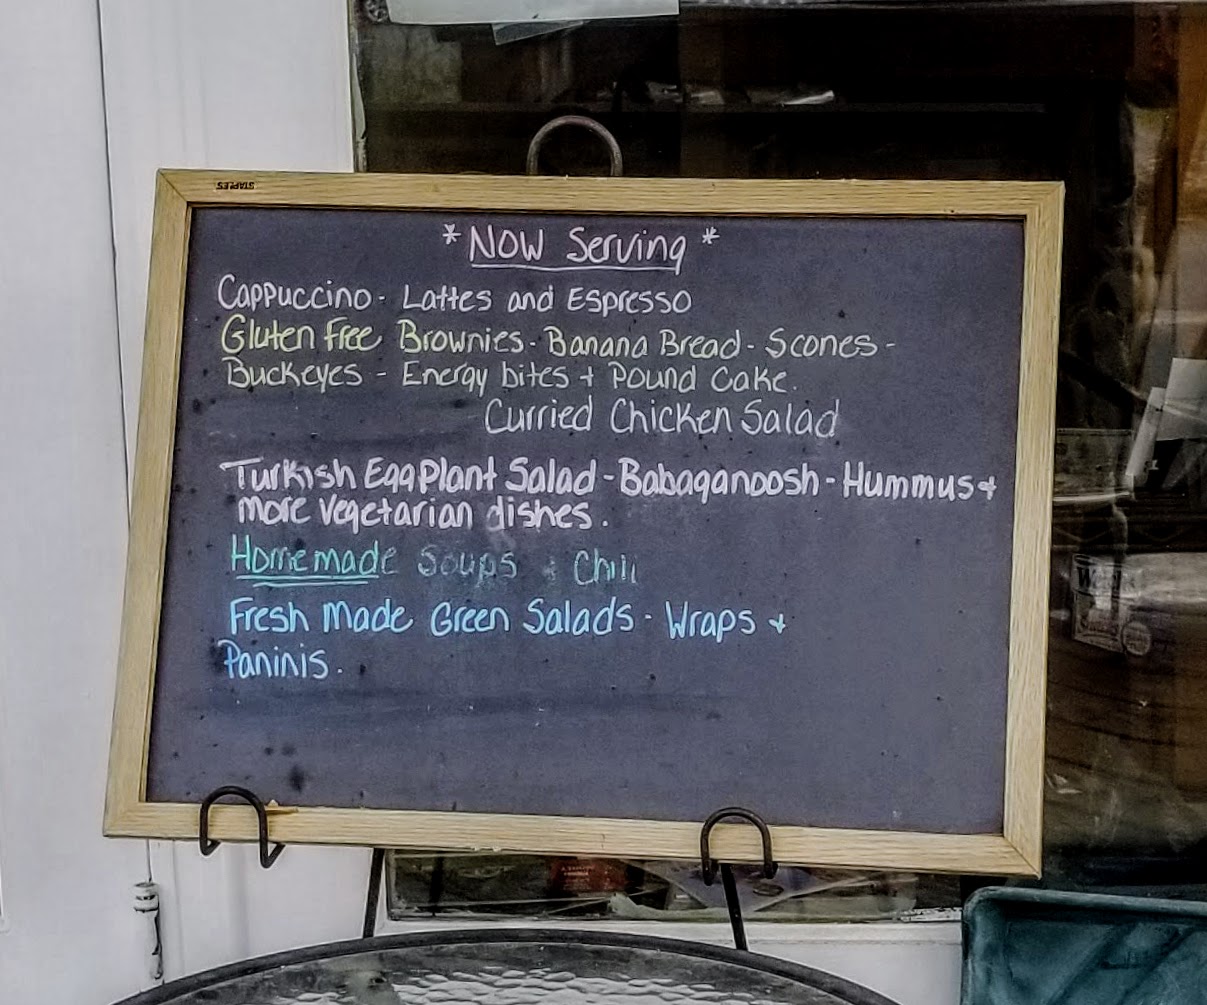 STAPLES
* Now Serving *
Cappuccino - Lattes and Espresso
Gluten Free Brownies - Banana Bread - Scones -
Buckeyes - Energy bites + Pound Cake.
Curried Chicken Salad
Turkish Eggplant Salad - Babaganoosh - Hummus +
more vegetarian dishes.
Homemade Soups + Chili
Fresh Made Green Salads - Wraps +
Paninis.